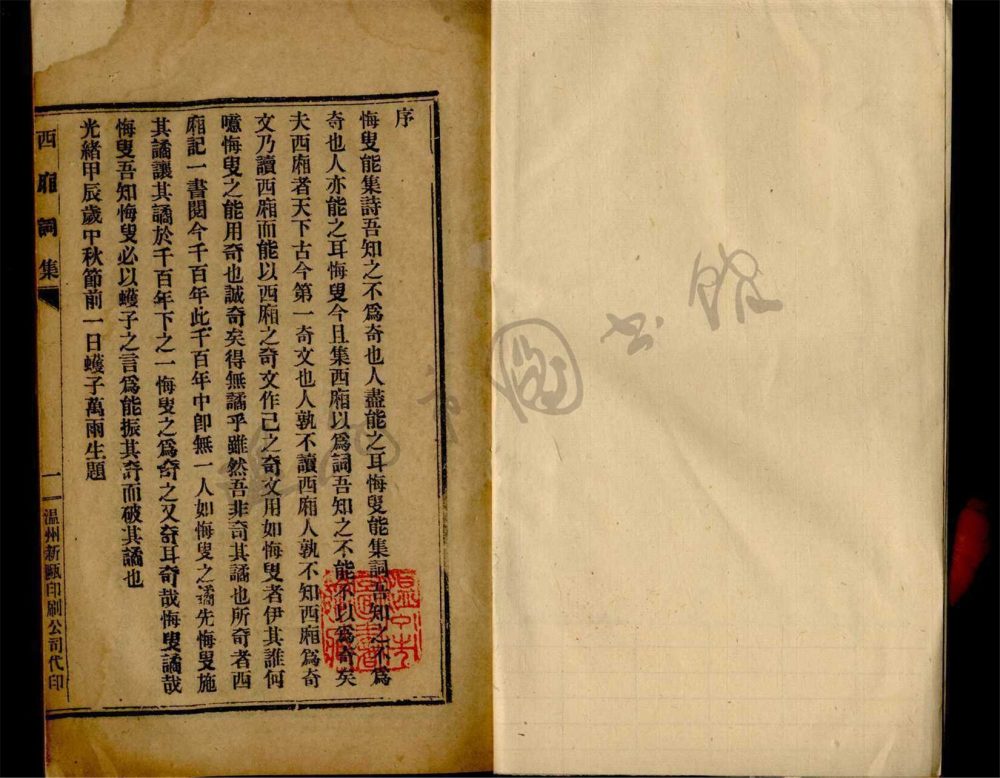 序
悔叟能集詩吾知之不爲奇也人盡能之耳悔叟能集詞吾知之不爲
奇也人亦能之耳悔叟今且集西廂以爲詞吾知之不能不以爲奇矣
夫西廂者天下古今第一奇文也人孰不讀西廂人孰不知西廂爲奇
文乃讀西廂而能以西廂之奇文作己之奇文用如悔叟者伊其誰何
噫悔叟之能用奇也誠奇矣得無譎乎雖然吾非奇其譎也所奇者西
廂記一書閱今千百年此千百年中卽無一人如悔叟之譎先悔叟施
其譎讓其譎於千百年下之一悔叟之爲奇之又奇耳奇哉悔叟譎哉
悔叟吾知悔叟必以蠖子之言爲能振其奇而破其譎也
光緒甲辰歲中秋節前一日蠖子萬雨生題
西廂詞集
一
温州新甌印刷公司代印
温州市圖書館
温州市
圖書館